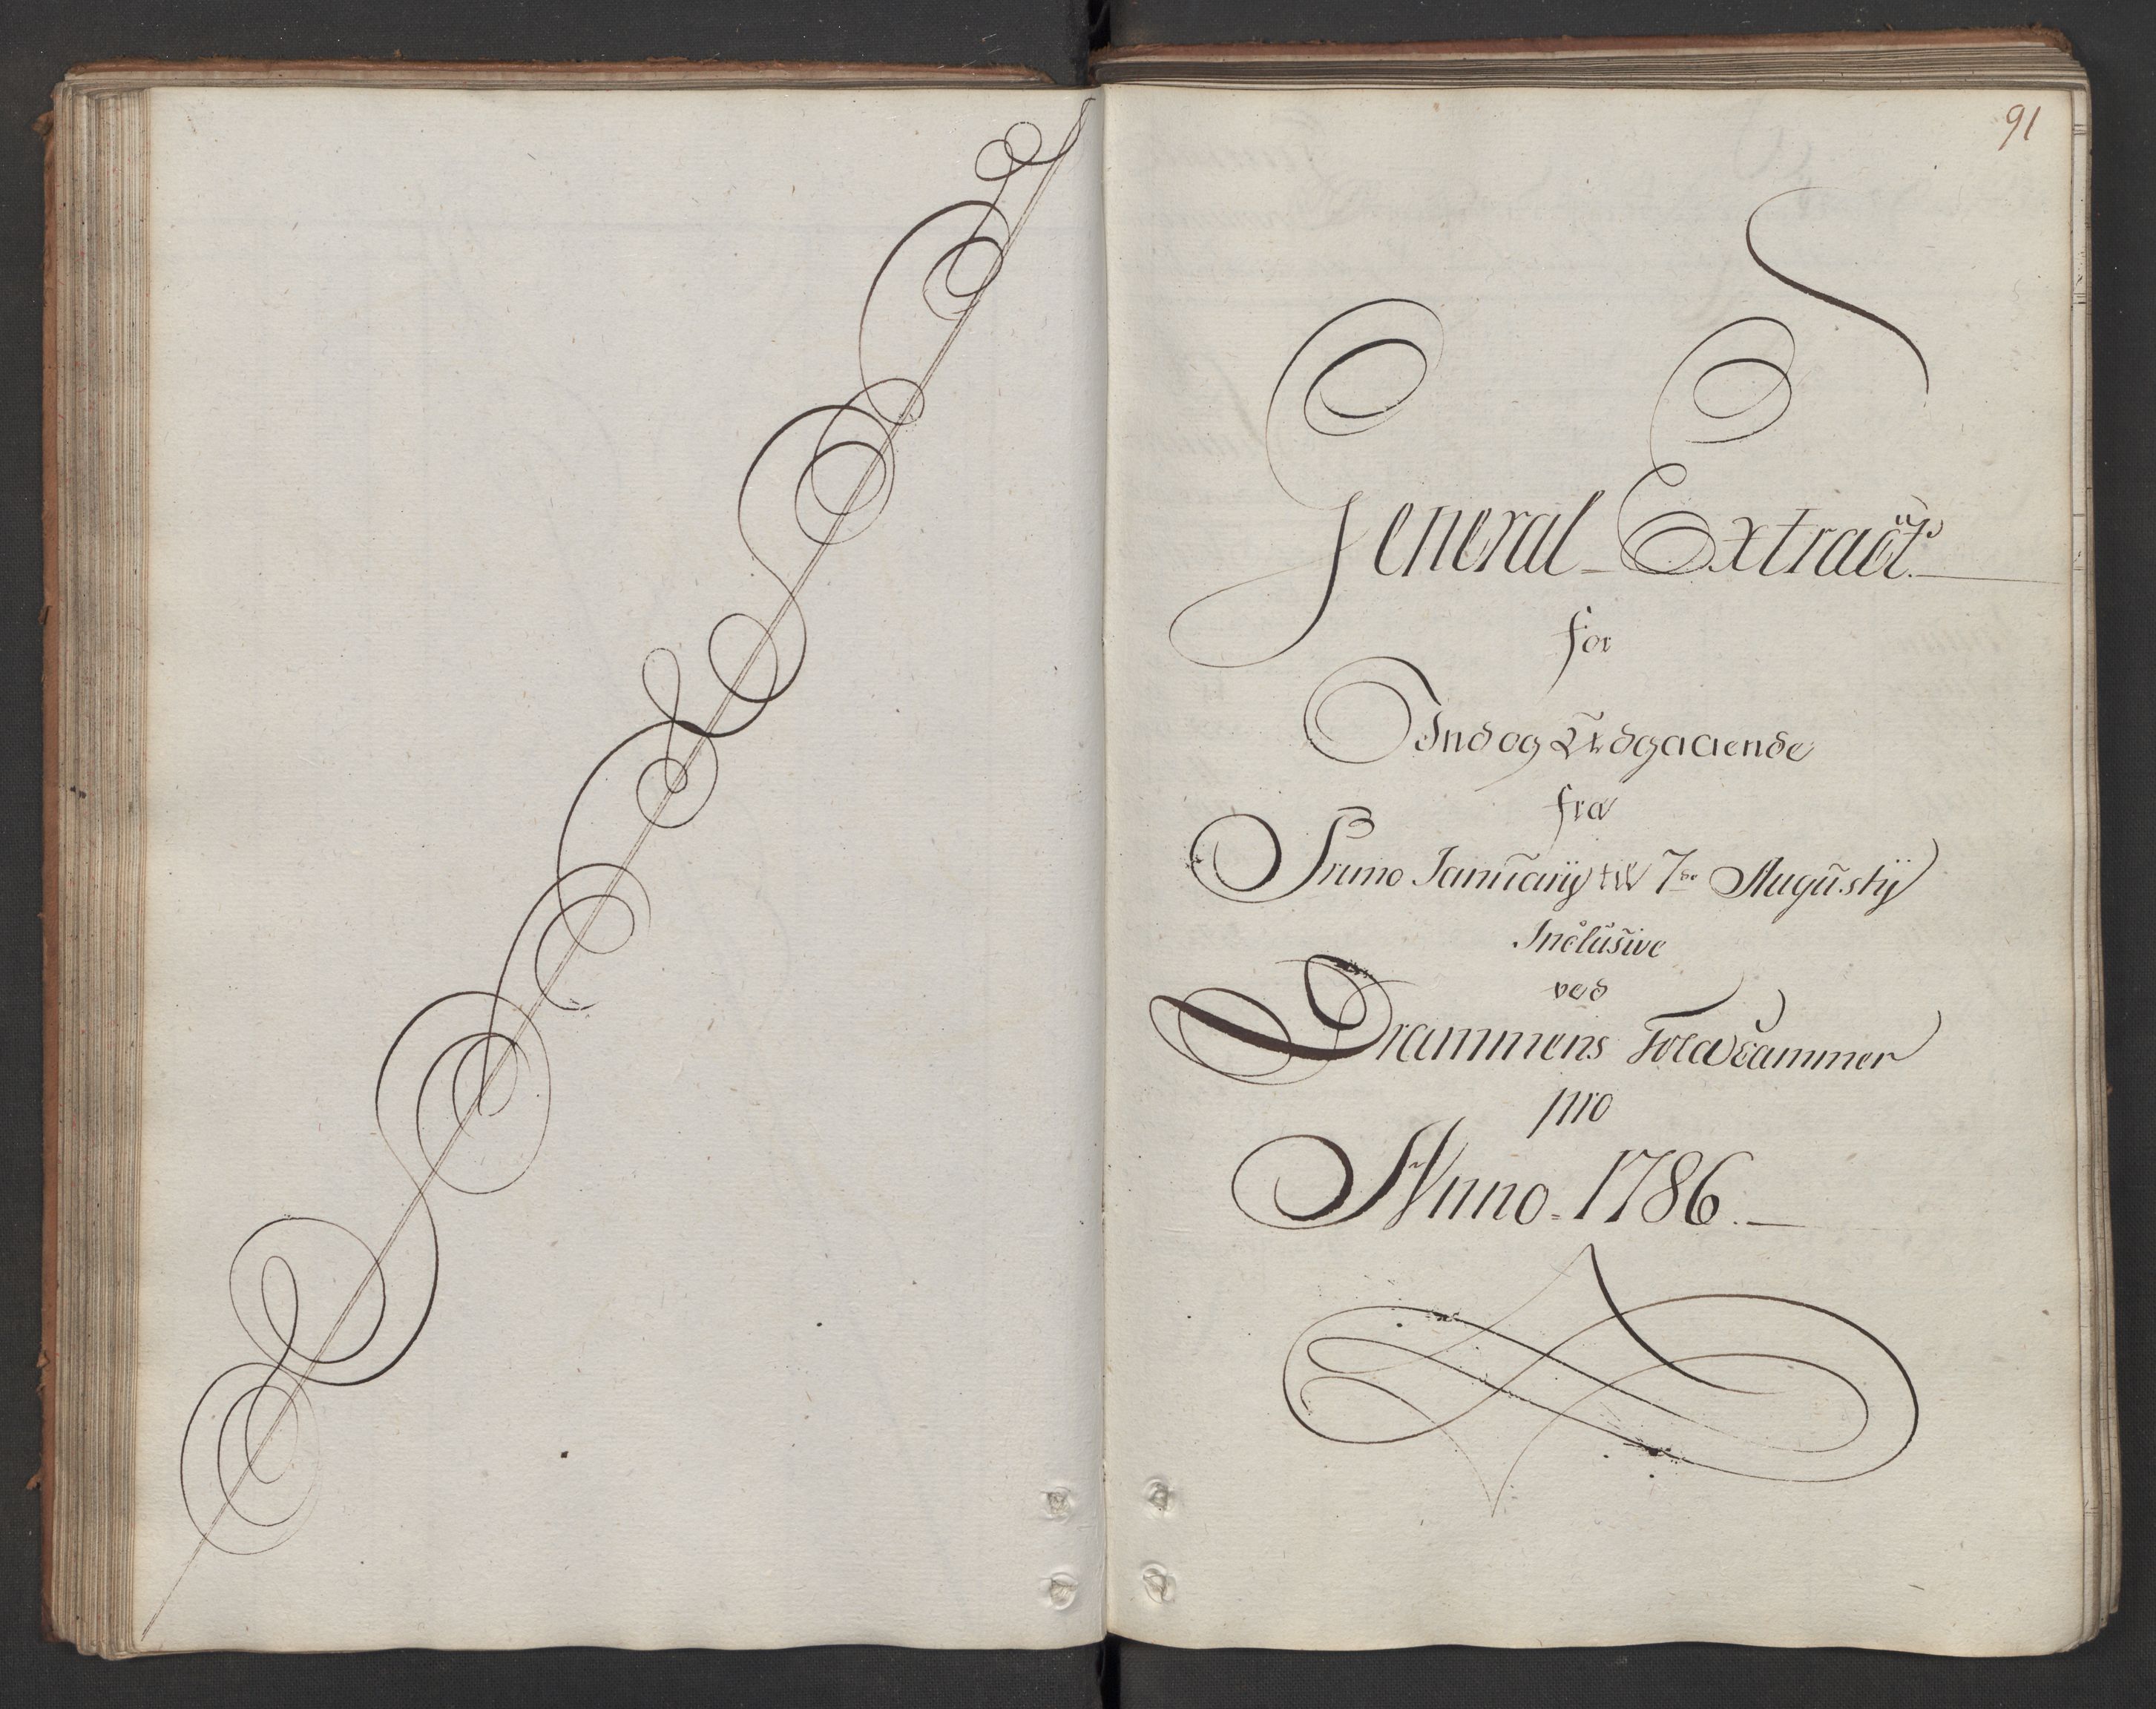 91
General Extract
for
Ind og Udgaaende
fra
Primo Januarij til 7de Augustij
Inclusive
ved
Drammens Told Cammer
pro
Anno 1786.